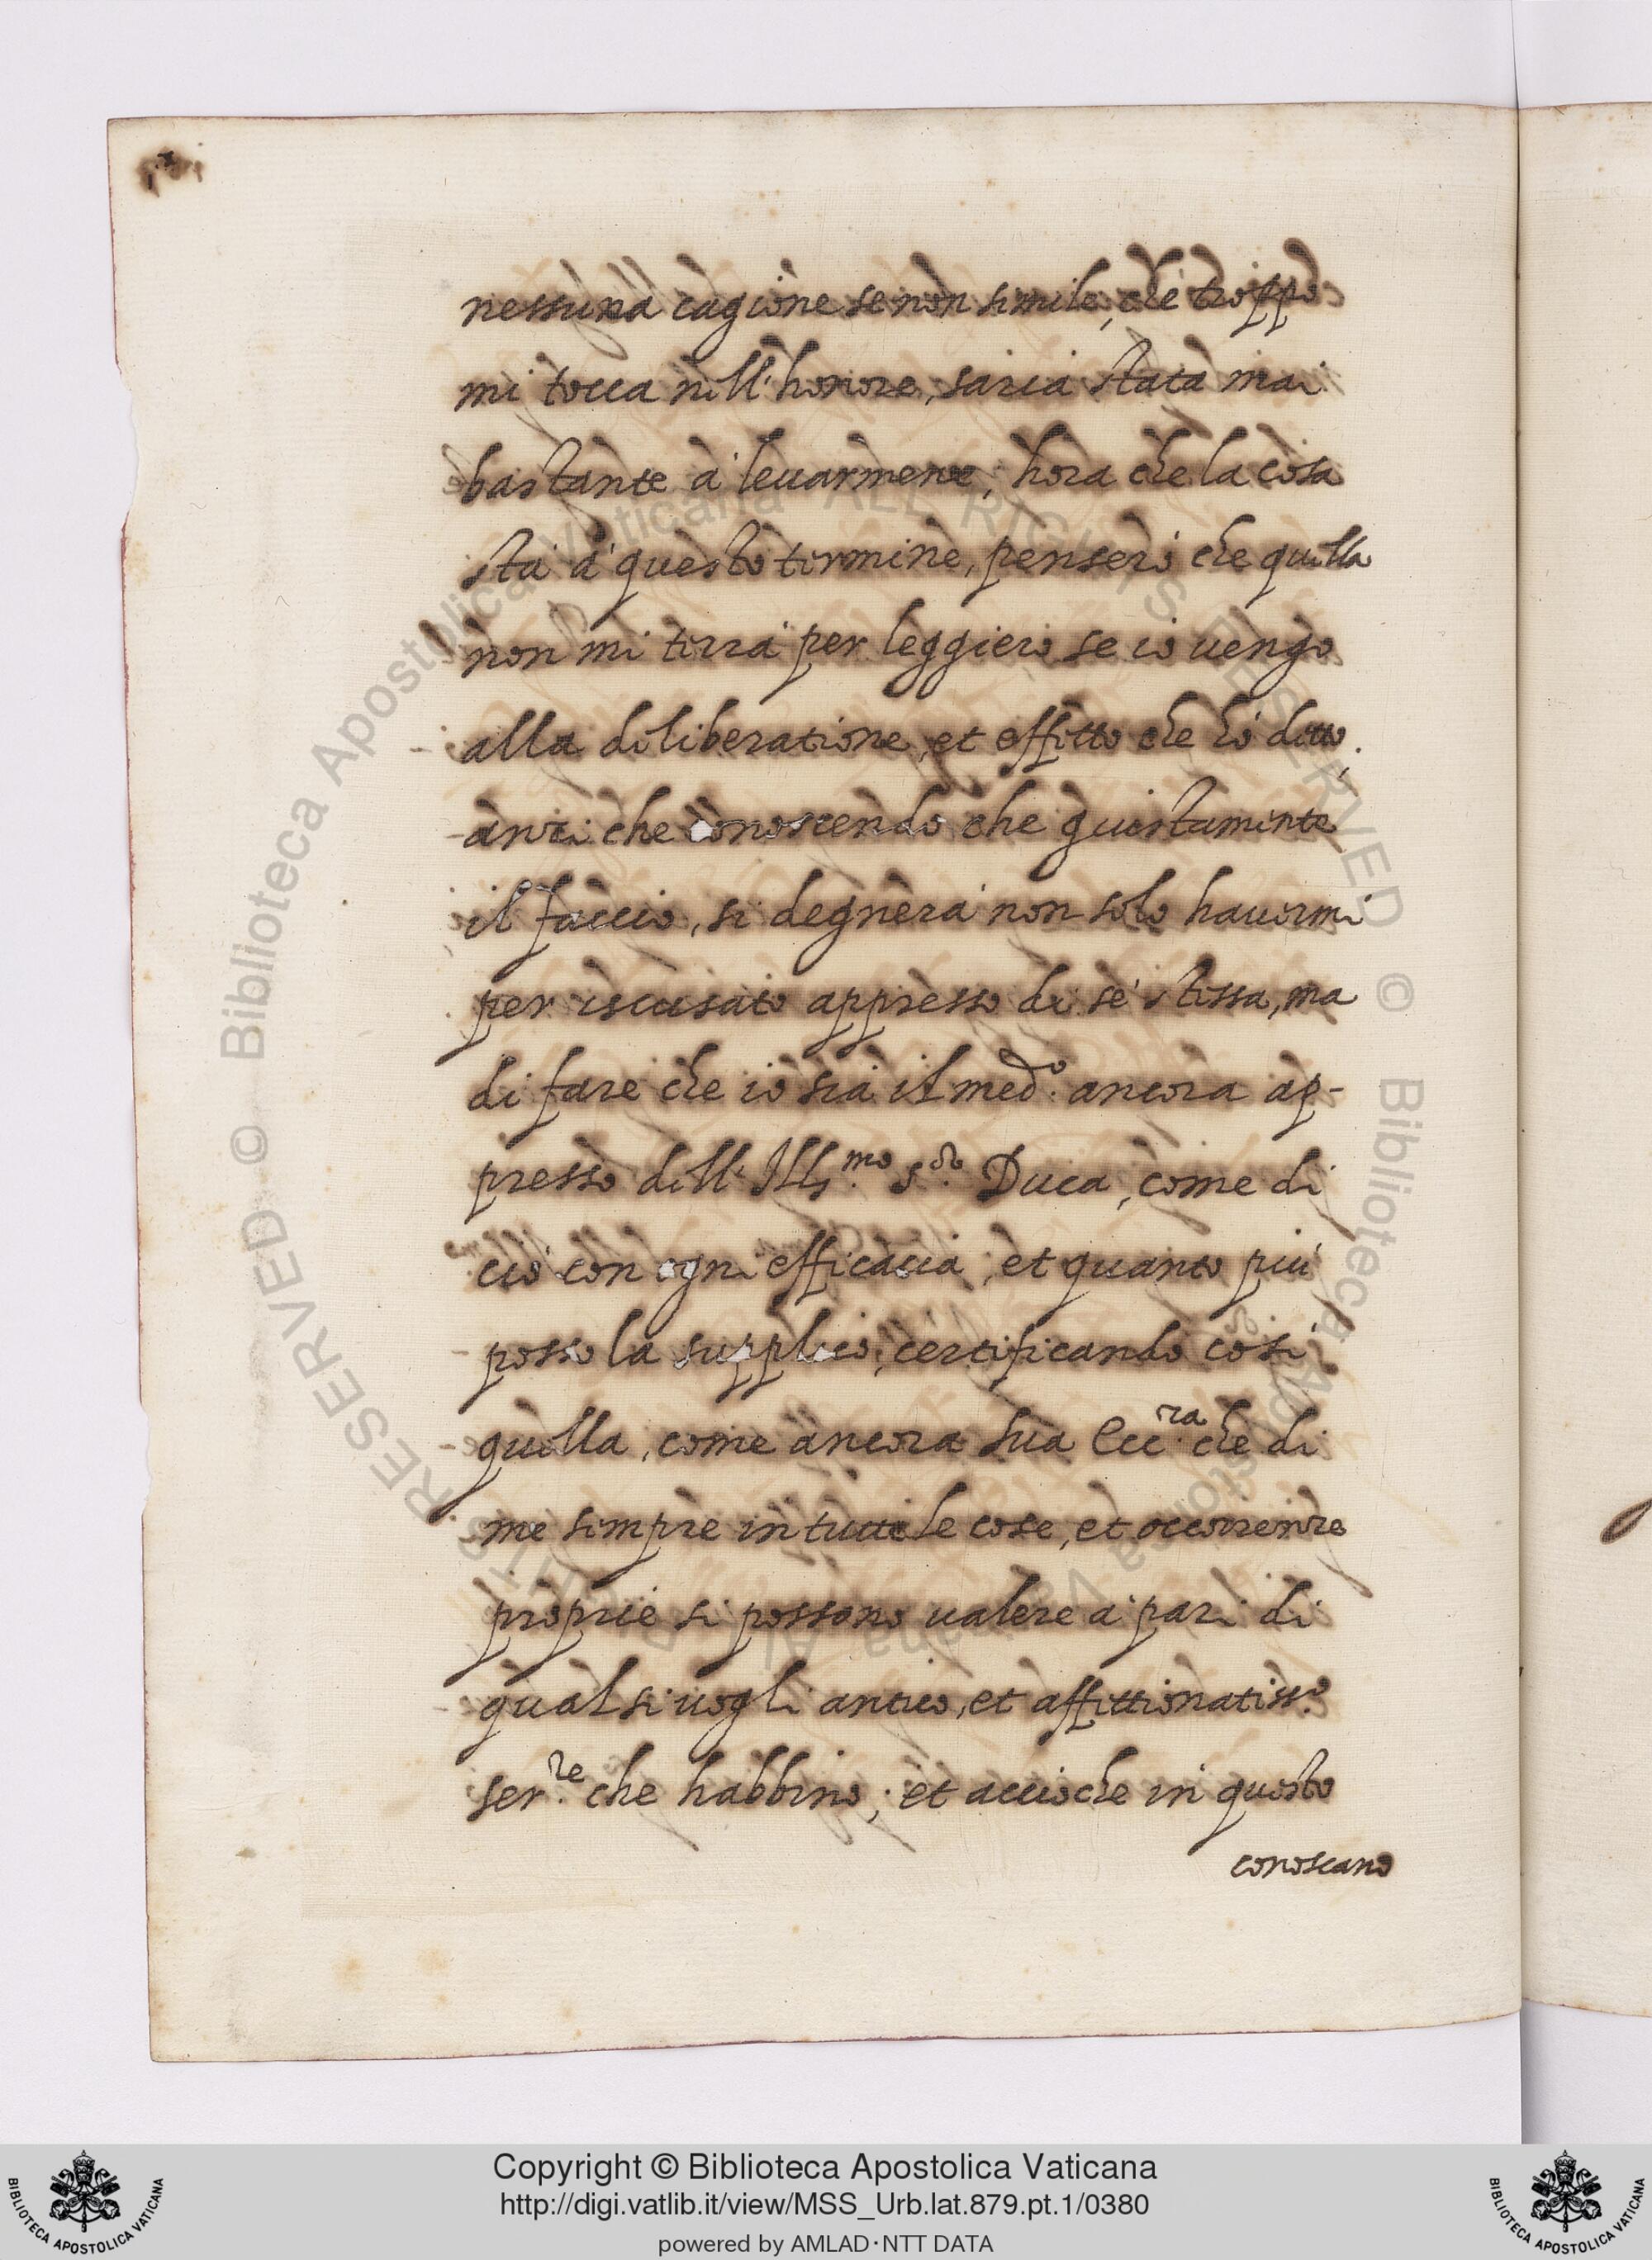 nessuna cagione se non simile, che troppo
mi tocca nell'honore, saria stata mai
bastante à leuarmene, hora che la cosa
stà à questo termine, penserò che quella
non mi terrà per leggiero se io uengo
alla deliberatione, et effetto che hò detto,
anzi che conoscendo che giustamente
il faccio, si degnerà non solo hauermi
per iscusato appresso di sè stessa, ma
di fare che io sia il med.º ancora ap-
presso dell'Ill.mo S.or Duca, come di
ciò con ogni efficacia, et quanto più
posso la supplico, certificando così
quella, come ancora sua Ecc.za che di
me sempre in tutte le cose, et occorrenze
proprie si possono ualere à pari di
qual si uogli antico, et affettionatiss.º
ser.re che habbino; et accioche in questo
conoscano
Copyright © Biblioteca Apostolica Vaticana
http://digi.vatlib.it/view/MSS_Urb.lat.879.pt.1/0380
powered by AMLAD·NTT DATA
BIBLIOTECA APOSTOLICA VATICANA
BIBLIOTECA APOSTOLICA VATICANA